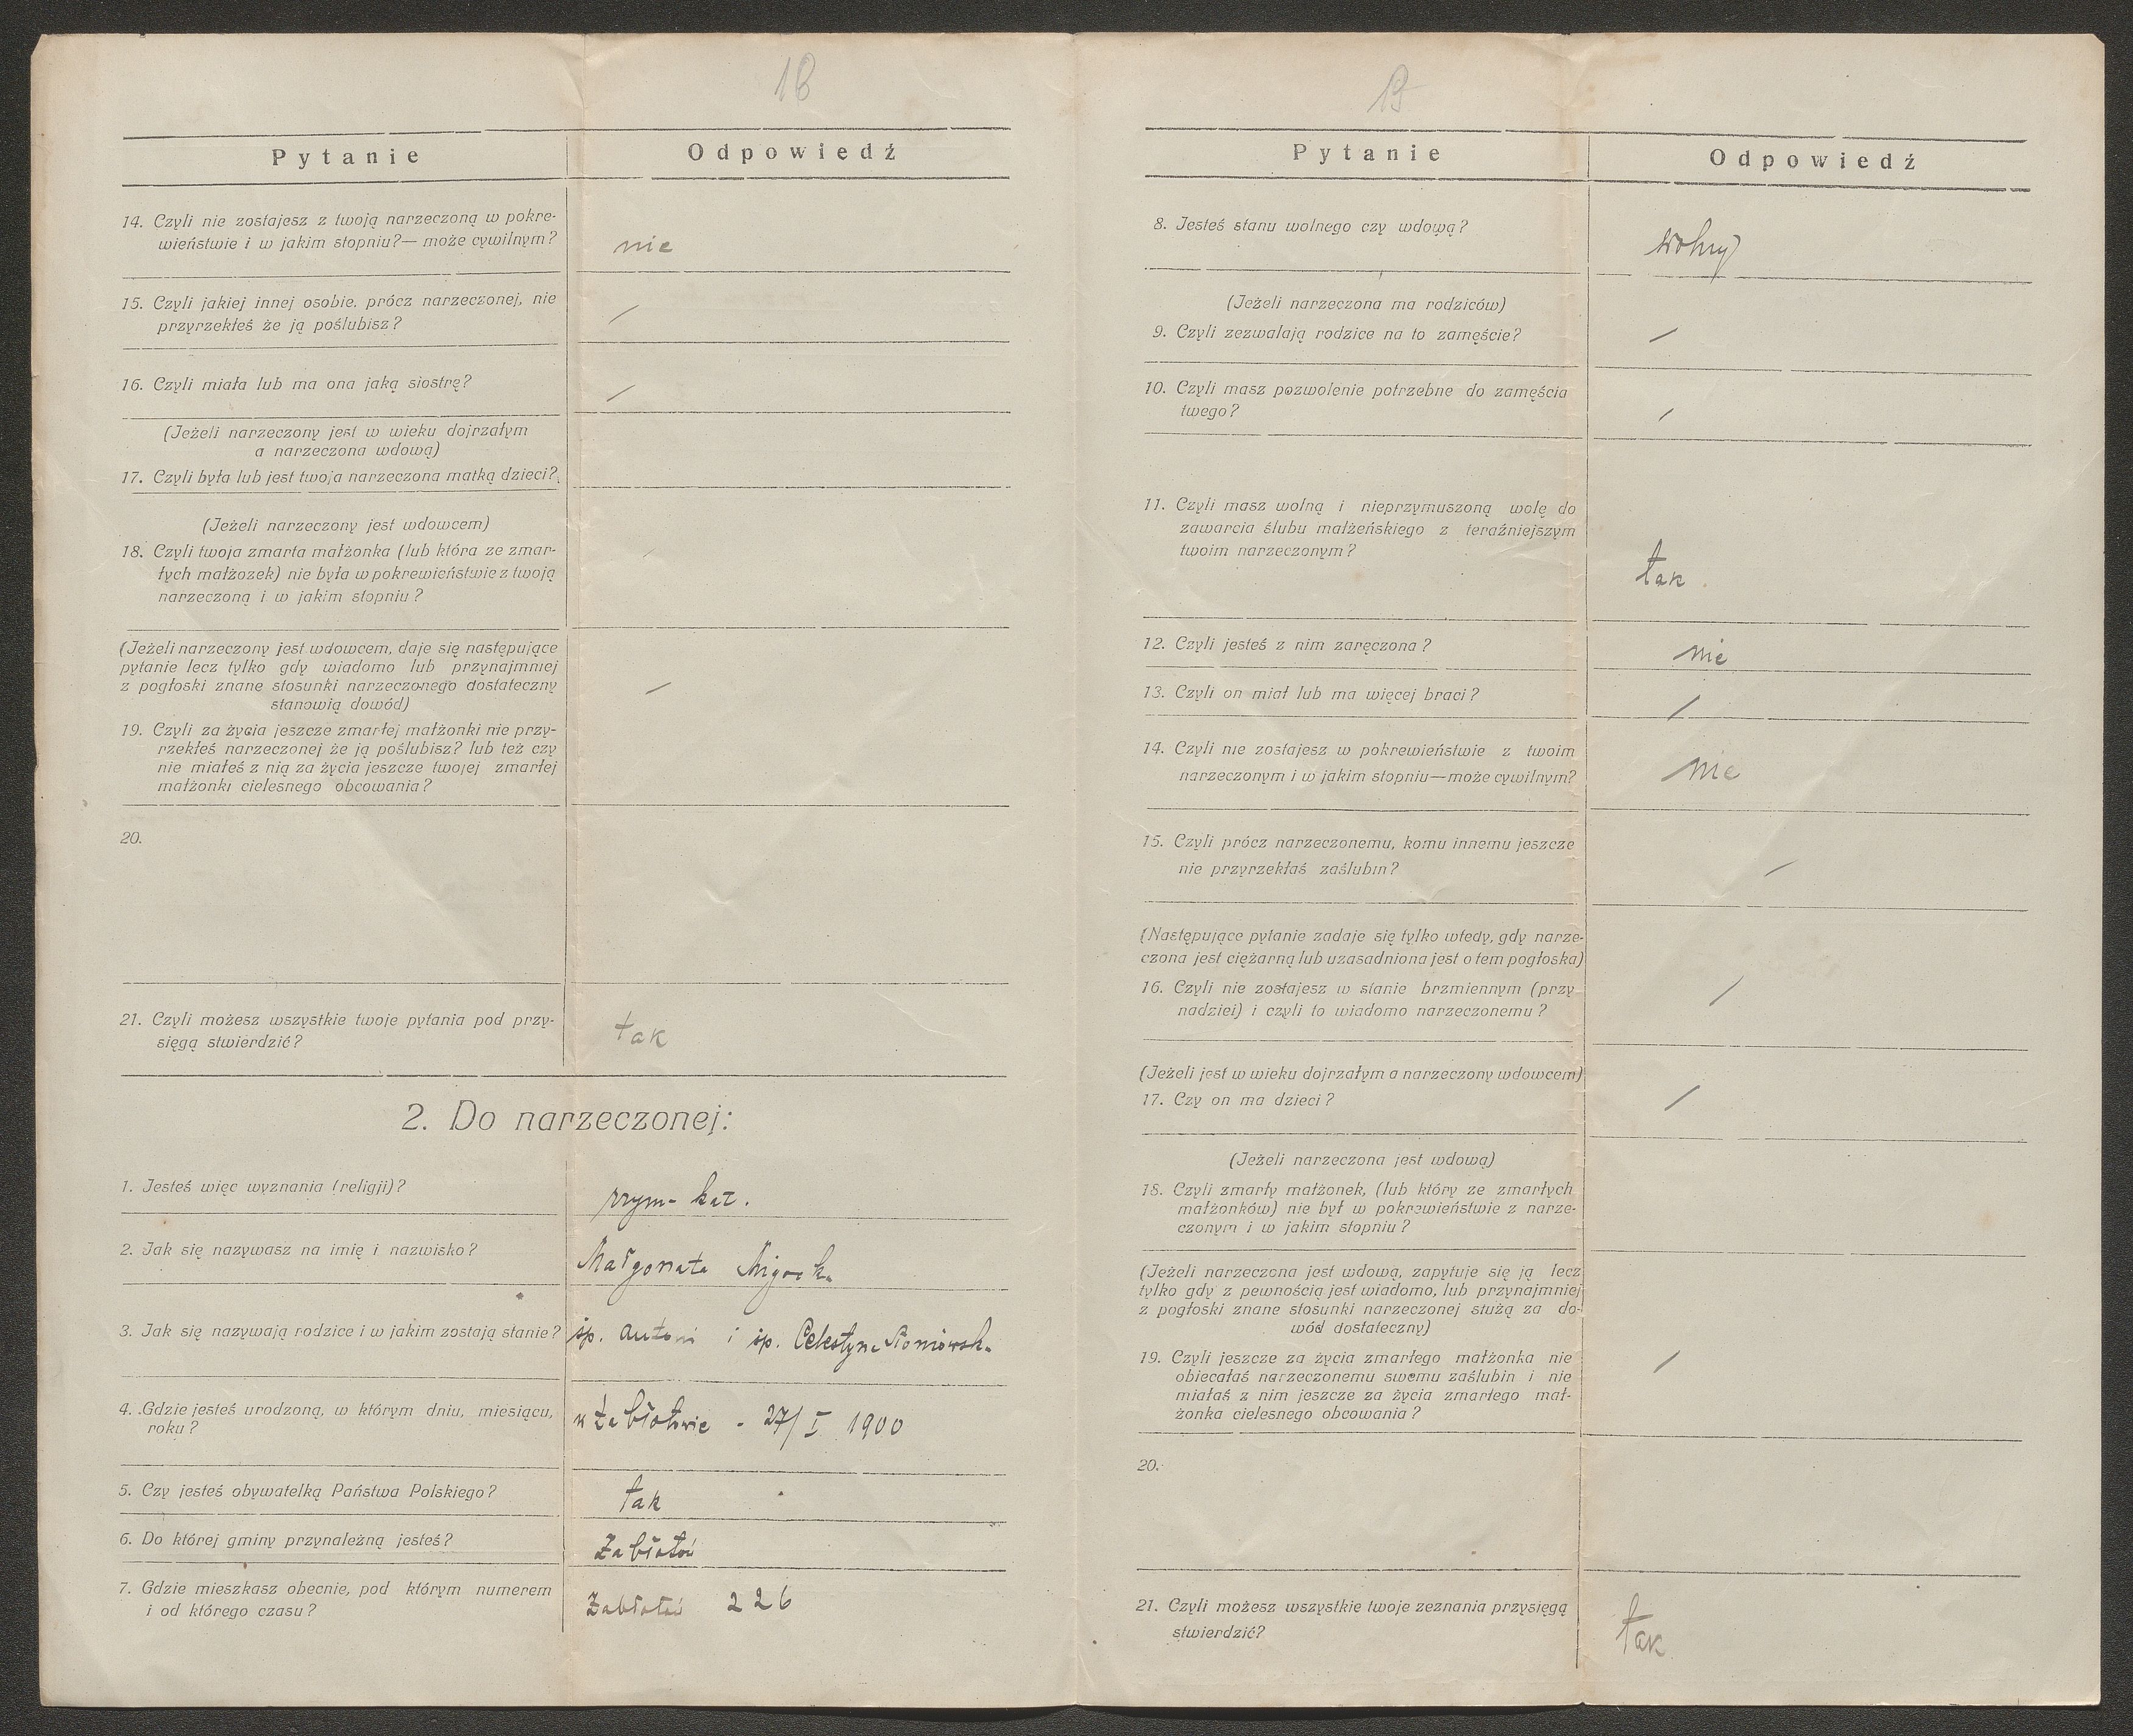 18
Pytanie
Odpowiedź
14. Czyli nie zostajesz z twoją narzeczoną w pokre-
wieństwie i w jakim stopniu?— może cywilnym?
nie
15. Czyli jakiej innej osobie. prócz narzeczonej, nie
przyrzekłeś że ją poślubisz?
/
16. Czyli miała lub ma ona jaką siostrę?
/
(Jeżeli narzeczony jest w wieku dojrzałym
a narzeczona wdową)
17. Czyli była lub jest twoja narzeczona matką dzieci?
(Jeżeli narzeczony jest wdowcem)
18. Czyli twoja zmarła małżonka (lub która ze zmar-
łych małżozek) nie była w pokrewieństwie z twoją
narzeczoną i w jakim stopniu?
(Jeżeli narzeczony jest wdowcem, daje się następujące
pytanie lecz tylko gdy wiadomo lub przynajmniej
z pogłoski znane stosunki narzeczonego dostateczny
stanowią dowód)
/
19. Czyli za życia jeszcze zmarłej małżonki nie przy-
rzekłeś narzeczonej że ją poślubisz? lub też czy
nie miałeś z nią za życia jeszcze twojej zmarłej
małżonki cielesnego obcowania?
20.
21. Czyli możesz wszystkie twoje pytania pod przy-
sięgą stwierdzić?
tak
2. Do narzeczonej:
1. Jesteś więc wyznania (religji)?
rzym- kat.
2. Jak się nazywasz na imię i nazwisko?
Małgorzata
3. Jak się nazywają rodzice i w jakim zostają stanie?
śp. Antoni i śp. Celestyna
4. Gdzie jesteś urodzoną, w którym dniu, miesiącu,
roku?
w Zabłotowie - 27/I 1900
5. Czy jesteś obywatelką Państwa Polskiego?
tak
6. Do której gminy przynależną jesteś?
Zabłotów
7. Gdzie mieszkasz obecnie, pod którym numerem
i od którego czasu?
Zabłotów 226
19
Pytanie
Odpowiedź
8. Jesteś stanu wolnego czy wdową?
wolny
(Jeżeli narzeczona ma rodziców)
9. Czyli zezwalają rodzice na to zamęście?
/
10. Czyli masz pozwolenie potrzebne do zamęścia
twego?
/
11. Czyli masz wolną i nieprzymuszoną wolę do
zawarcia ślubu małżeńskiego z teraźniejszym
twoim narzeczonym?
tak
12. Czyli jesteś z nim zaręczona?
nie
13. Czyli on miał lub ma więcej braci?
/
14. Czyli nie zostajesz w pokrewieństwie z twoim
narzeczonym i w jakim stopniu—może cywilnym?
nie
15. Czyli prócz narzeczonemu, komu innemu jeszcze
nie przyrzekłaś zaślubin?
/
(Następujące pytanie zadaje się tylko wtedy, gdy narze-
czona jest ciężarną lub uzasadniona jest o tem pogłoska)
16. Czyli nie zostajesz w stanie brzmiennym (przy
nadziei) i czyli to wiadomo narzeczonemu?
/
(Jeżeli jest w wieku dojrzałym a narzeczony wdowcem)
17. Czy on ma dzieci?
/
(Jeżeli narzeczona jest wdową)
18. Czyli zmarły małżonek, (lub który ze zmarłych
małżonków) nie był w pokrewieństwie z narze-
czonym i w jakim stopniu?
(Jeżeli narzeczona jest wdową, zapytuje się ją lecz
tylko gdy z pewnością jest wiadomo, lub przynajmniej
z pogłoski znane stosunki narzeczonej służą za do-
wód dostateczny)
19. Czyli jeszcze za życia zmarłego małżonka nie
obiecałaś narzeczonemu swemu zaślubin i nie
miałaś z nim jeszcze za życia zmarłego mał-
żonka cielesnego obcowania?
/
20.
21. Czyli możesz wszystkie twoje zeznania przysięgą
stwierdzić?
tak